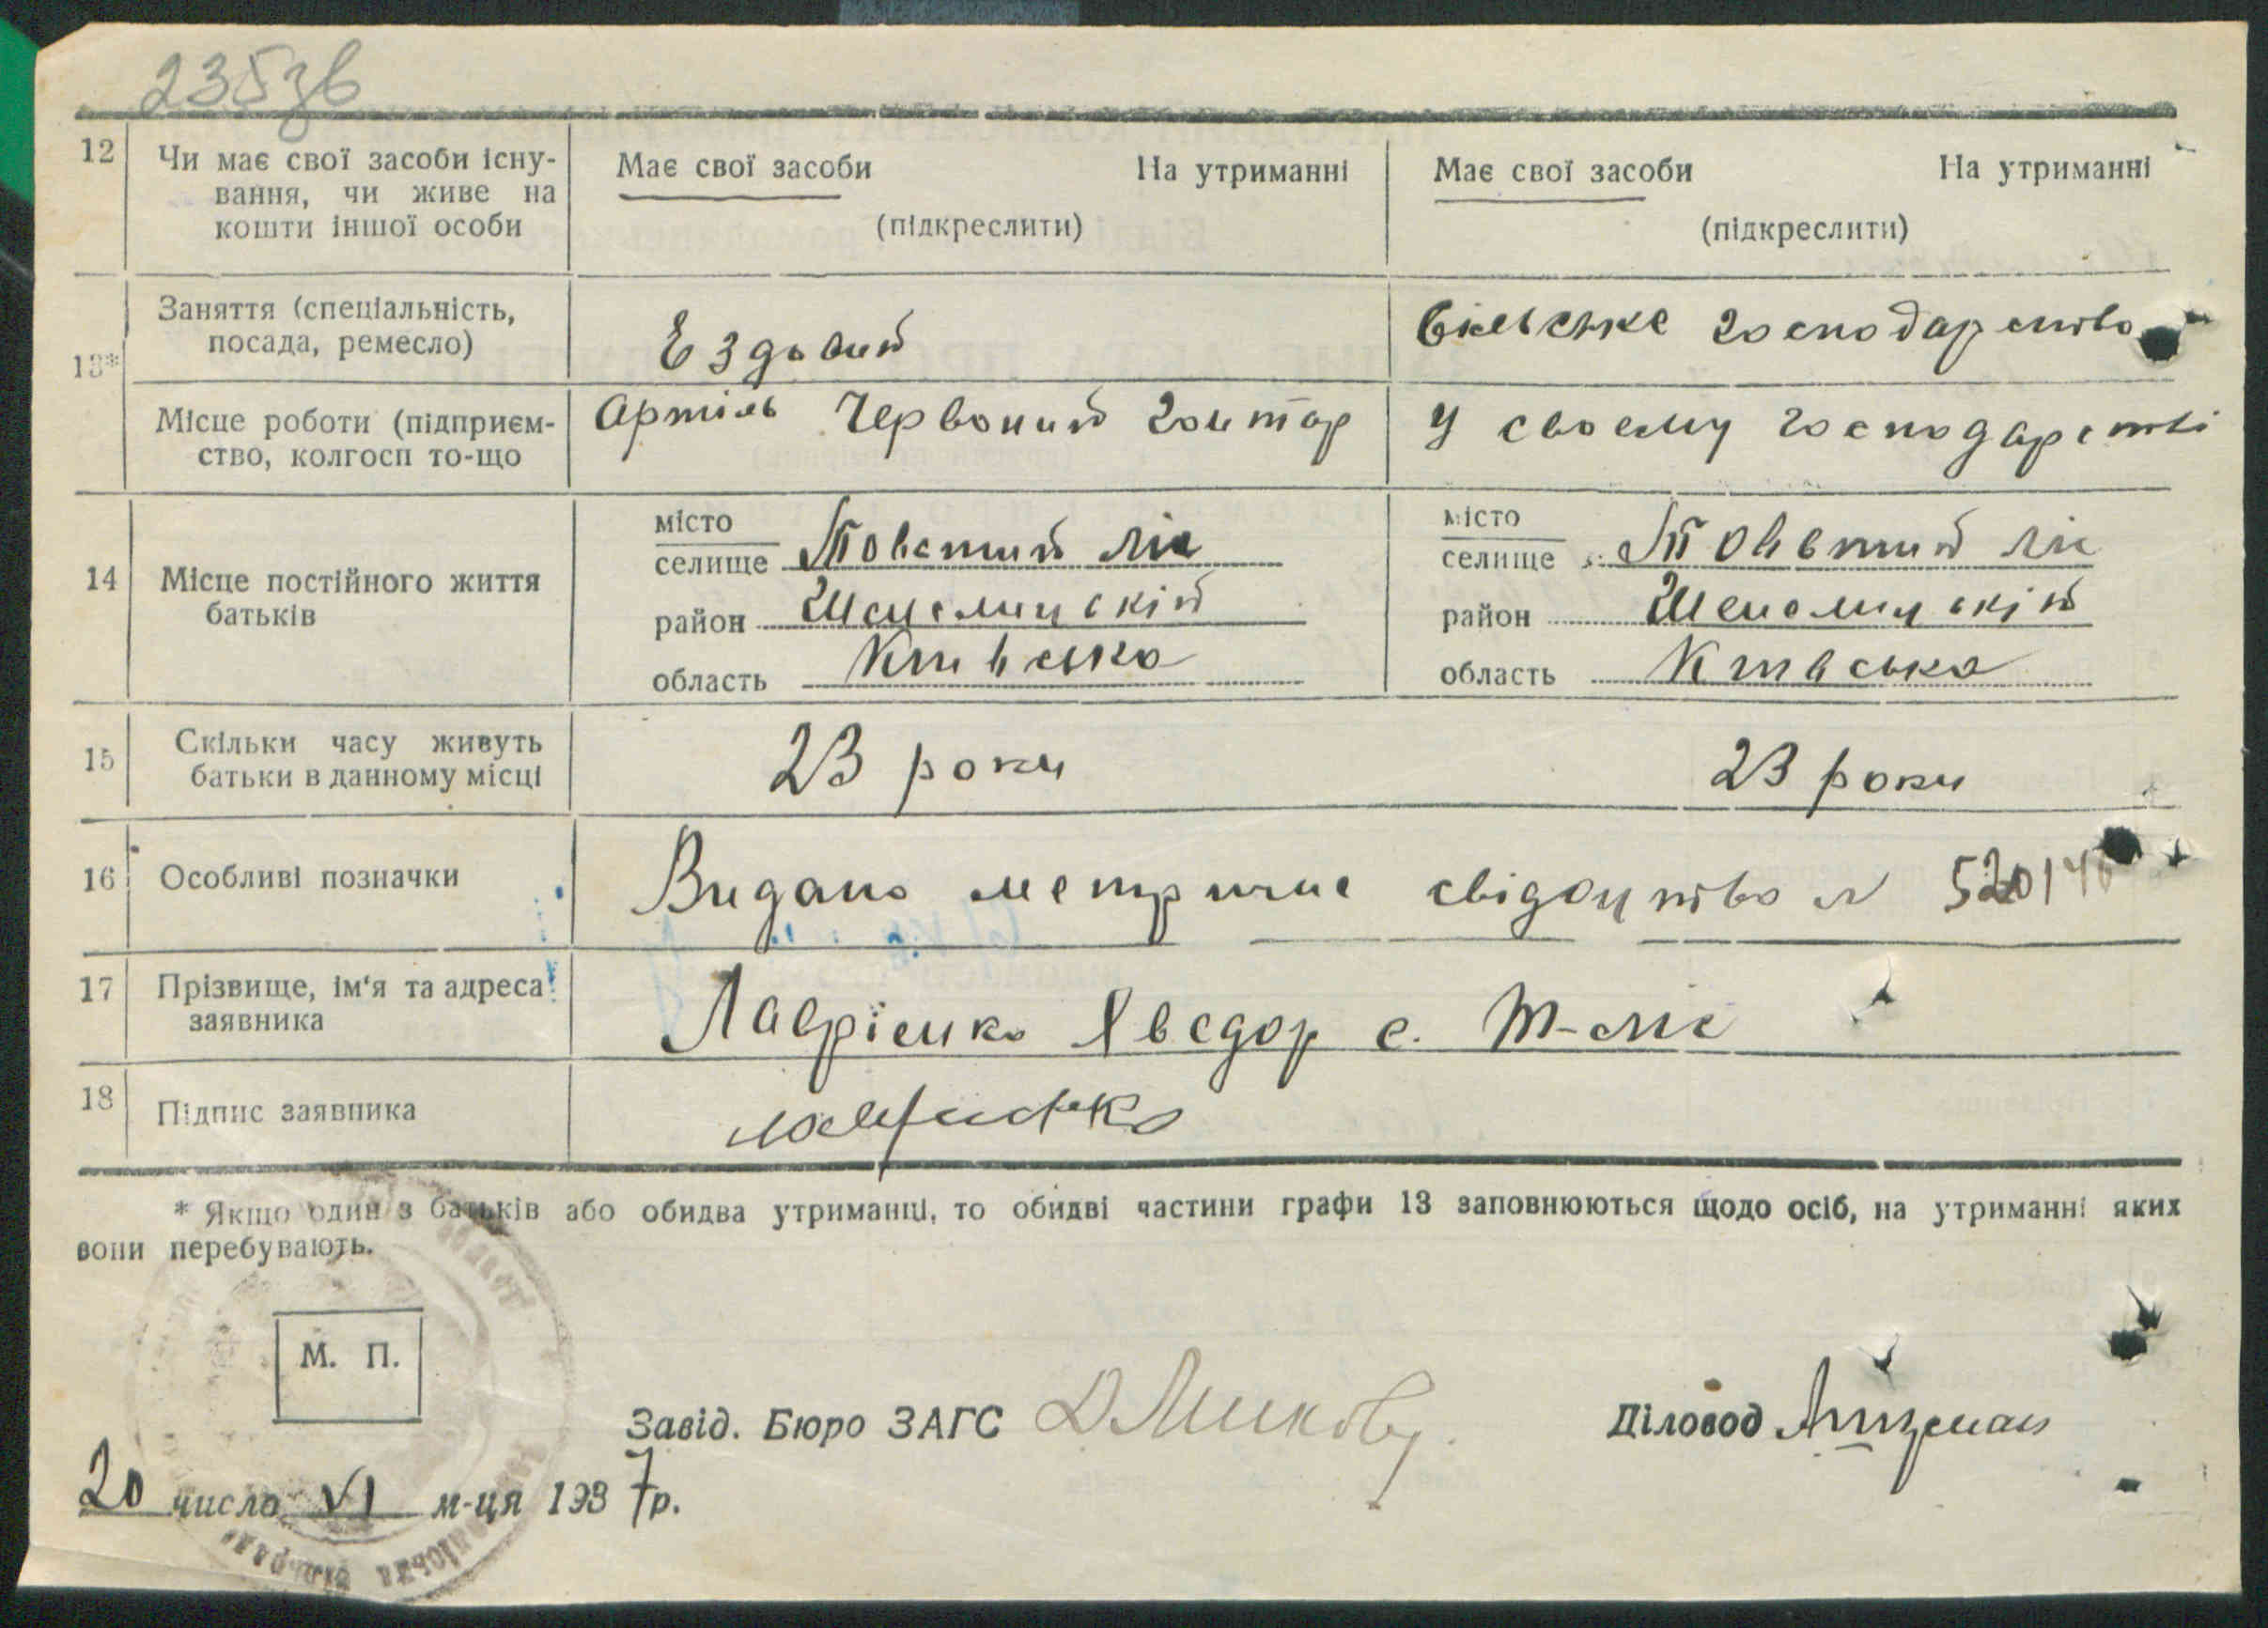 235зв
12 Чи має свої засоби існу-
вання, чи живе на
кошти іншої особи
Має свої засоби На утриманні
(підкреслити)
Має свої засоби На утриманні
(підкреслити)
13*
Заняття (спеціальність,
посада, ремесло)
Ездовий
Сільське господарство
Місце роботи (підприєм-
ство, колгосп то-що
Артіль Червоний
У своему господарстві
14 Місце постійного життя
батьків
місто
селище Товстий ліс
район
область Київська
місто
селище Товстий ліс
район
область Київська
15 Скільки часу живуть
батьки в данному місці
23 роки
23 роки
16 Особливі позначки
Видано метричне свідоцтво N 520146
17 Прізвище, ім'я та адреса
заявника
Лаврієнко с. Т-ліс
18 Підпис заявника
* Якщо один з батьків або обидва утриманці, то обидві частини графи 13 заповнюються щодо осіб, на утриманні яких
вони перебувають.
М. П.
Завід. Бюро ЗАГС
Діловод
20 число VI м-ця 1937р.